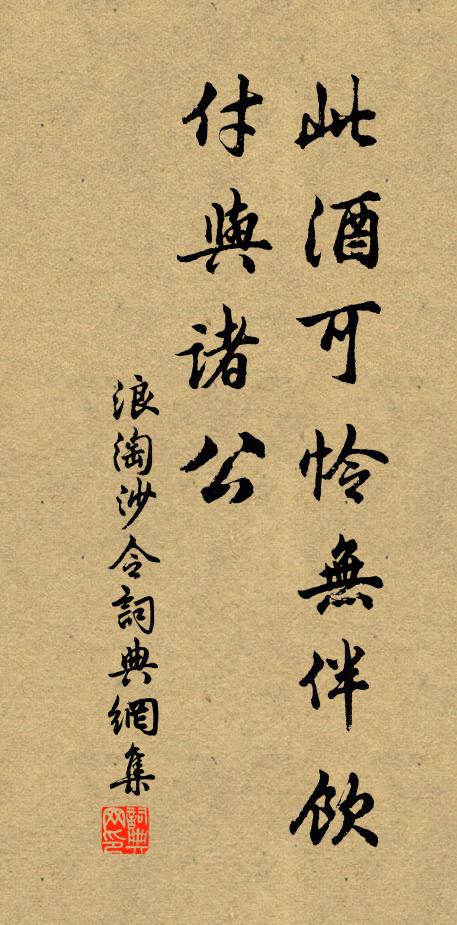 此酒可怜無伴飲
付與諸公
浪淘沙令詞典網集
詞典
网印